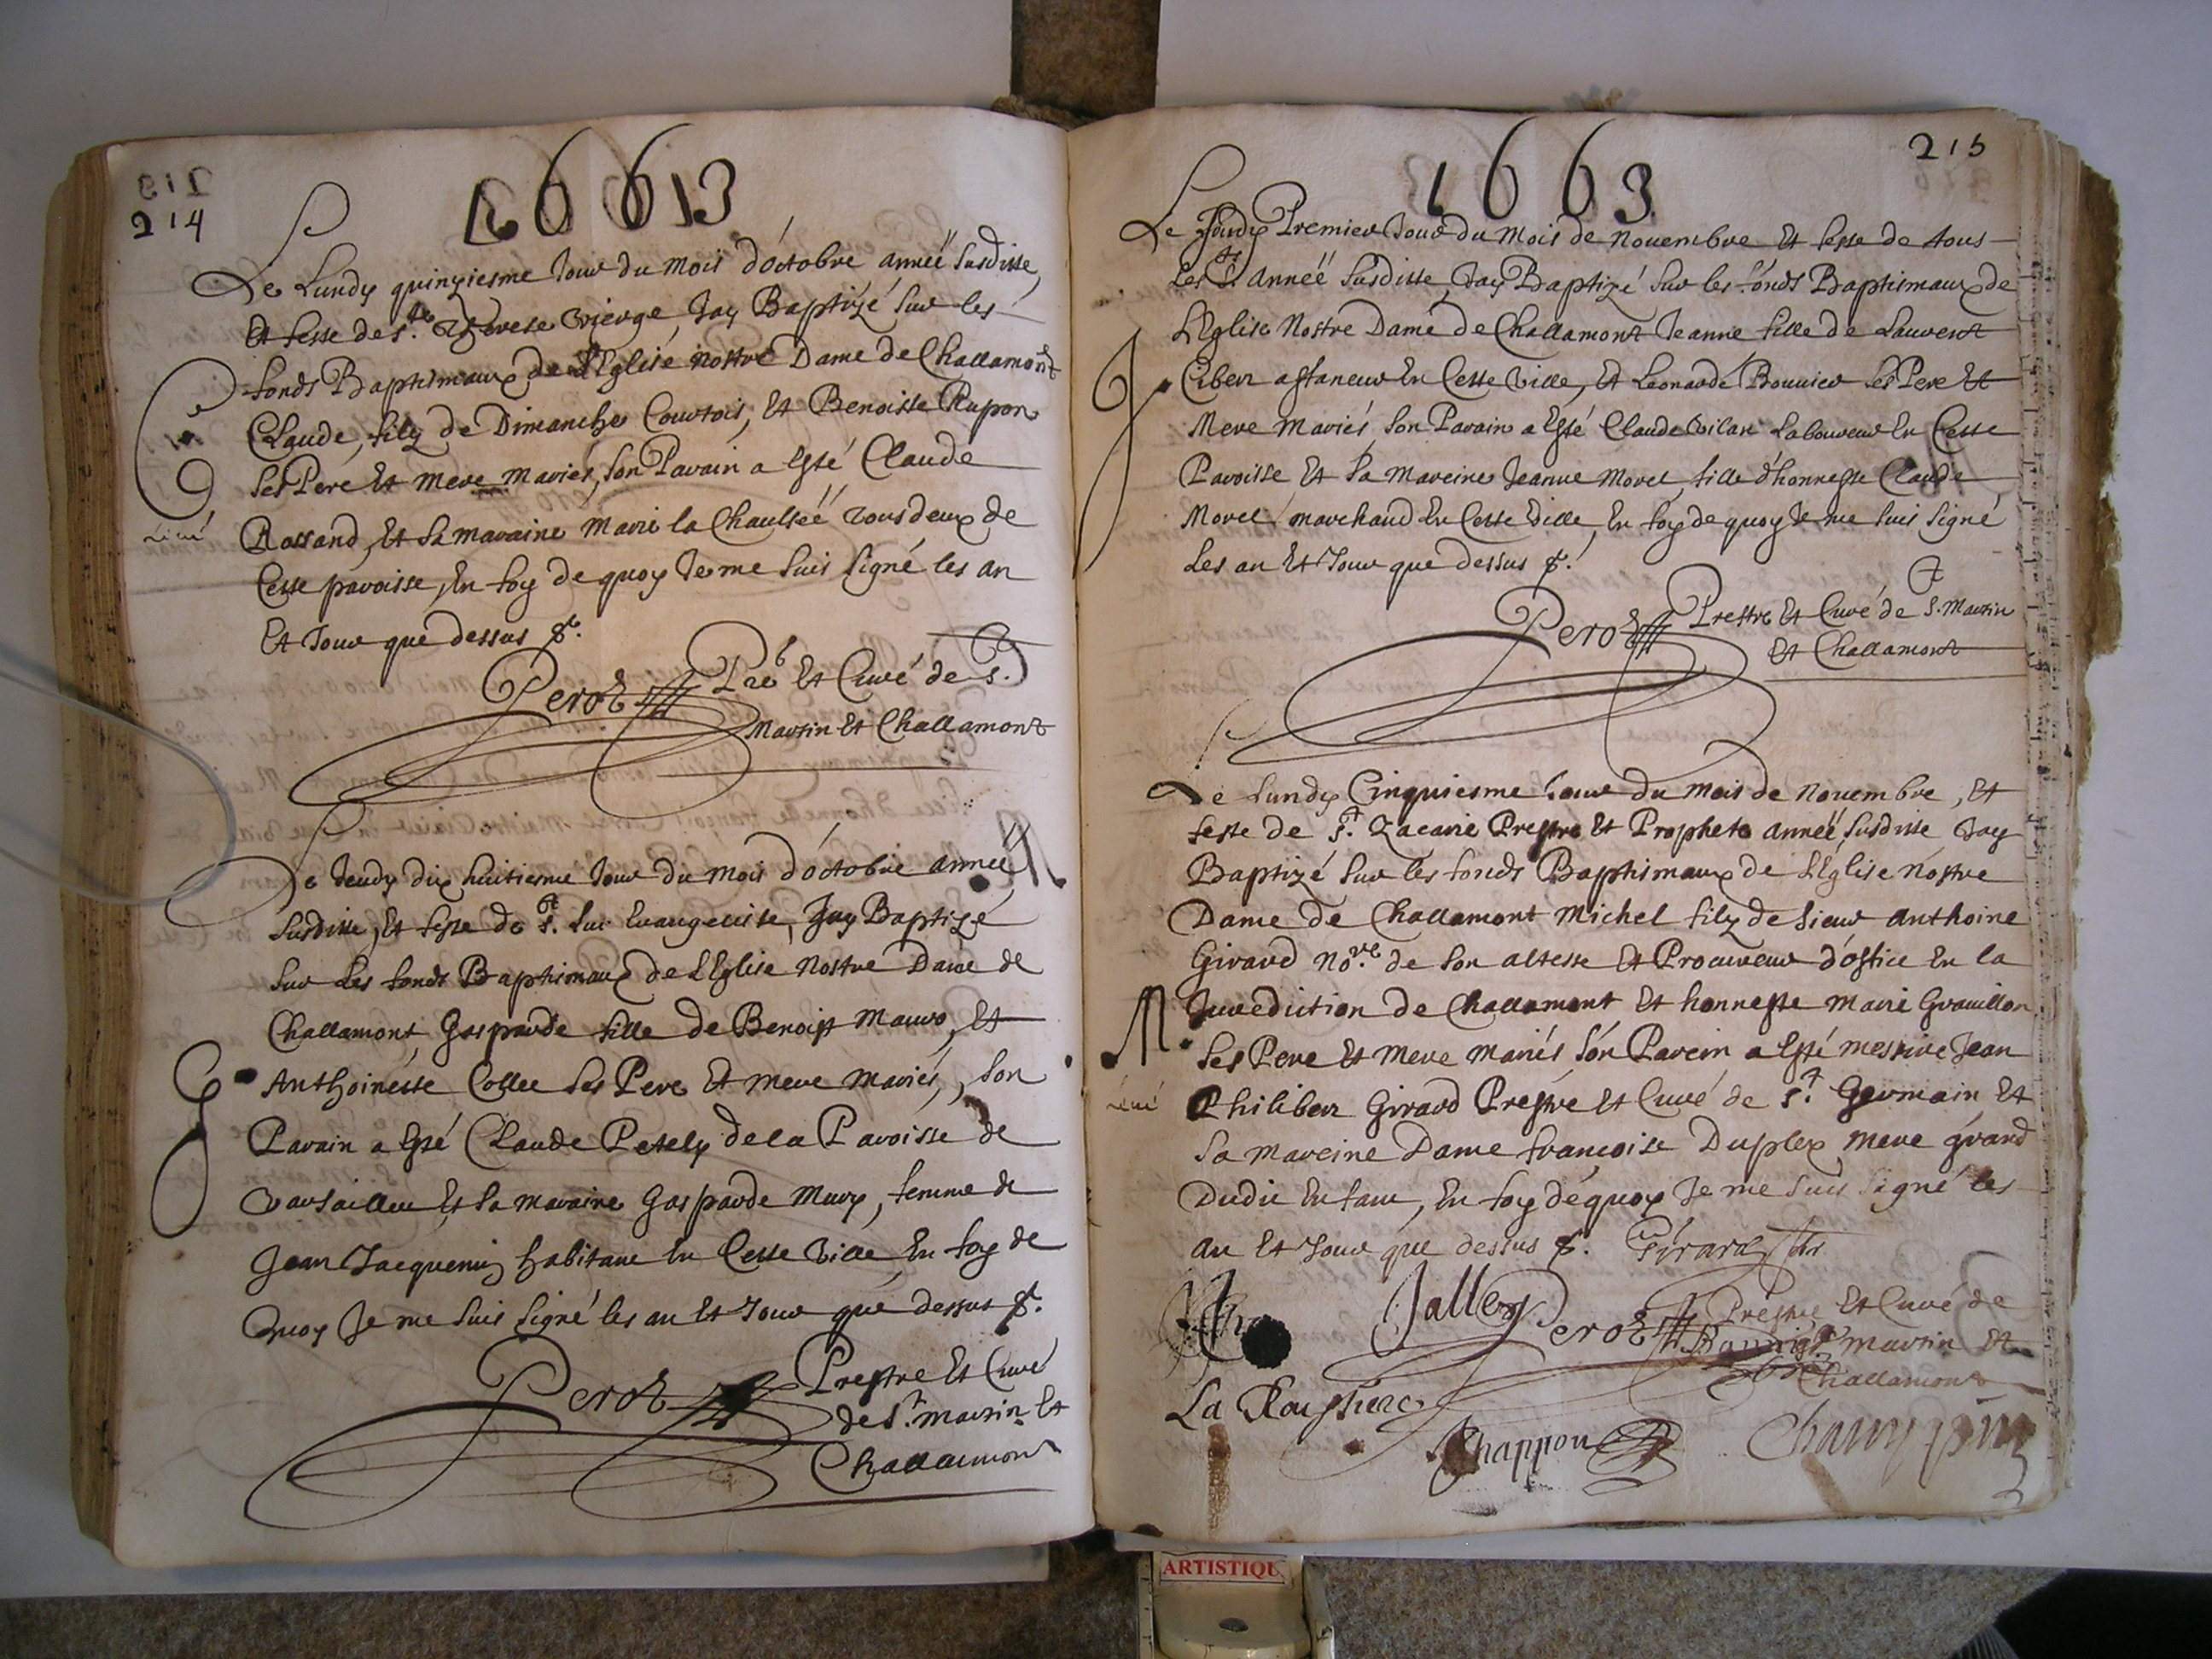 214
1663
Le Lundy quinziesme Jour du mois d'octobre année susditte,
Et feste de Ste Therese vierge, Jay Baptizé sur les
fonds Baptismaux de L'Eglise nostre Dame de Challamont
Claude, filz de Dimanche Courtois, Et Benoiste Rupon
ses Pere Et mere mariés, son Parain a Esté Claude
Rossand, Et sa maraine Marie la Chaulseé tous deux de
Cette paroisse, En foy de quoy Je me suis signé les an
Et Jour que dessus &.
Perot Pre Et Curé de St
Martin Et Challamont
Le Jeudy dix huitiesme Jour du mois d'octobre année
susditte, Et feste de St Luc Evangeliste, Jay Baptizé
sur Les fonds Baptismaux de L'Eglise Nostre Dame de
Challamont Gasparde fille de Benoist Mauro, Et
Anthoinette Collee ses Pere Et mere mariés, son
Parain a Esté Claude Petely de la Paroisse de
Varsailleu Et sa maraine Gasparde Mury, femme de
Jean Jacquemin habitant En Cette Ville, En foy de
Quoy Je me suis signé les an Et Jour que dessus &.
Perot Prestre Et Curé
de St martin Et
Challamont
215
1663
Le Jeudy Premier Jour du Mois de Novembre Et feste de tous
Les Sts Année susditte, Jay Baptizé sur les fonds Baptismaux de
L'Eglise Nostre Dame de Challamont Jeanne fille de Laurent
Cibert affaneur En Cette Ville, Et Leonarde Bouvier ses Pere Et
Mere Mariés, son Parain a Esté Claude Vilan Laboureur En Cette
Paroisse Et sa Mareine Jeanne Morel, fille d'honneste Claude
Morel marchand En Cette Ville, En foy de quoy Je me suis signé
Les an Et Jour que dessus &.
Perot Prestre Et Curé de St Martin
Et Challamont
Le Lundy Cinquiesme Jour du mois de Novembre, Et
feste de St Zacarie Prestre Et Prophete année susditte Jay
Baptizé sur les fonds Baptismaux de L'Eglise Nostre
Dame de Challamont Michel filz de sieur Anthoine
Girard nore de son altesse Et Procureur d'office En la
Jurediction de Challamont Et honneste Marie Gravillon
ses Pere Et mere mariés, son Parein a Esté messire Jean
Philibert Girard Prestre Et Curé de St Germain Et
sa mareine Dame francoise Duplex mere grand
Dudit Enfant, En foy de quoy Je me suis signé les
an Et Jour que dessus &. Girard
Perot Prestre Et Curé de
St martin Et
Challamont
Chappon
ARTISTIQU